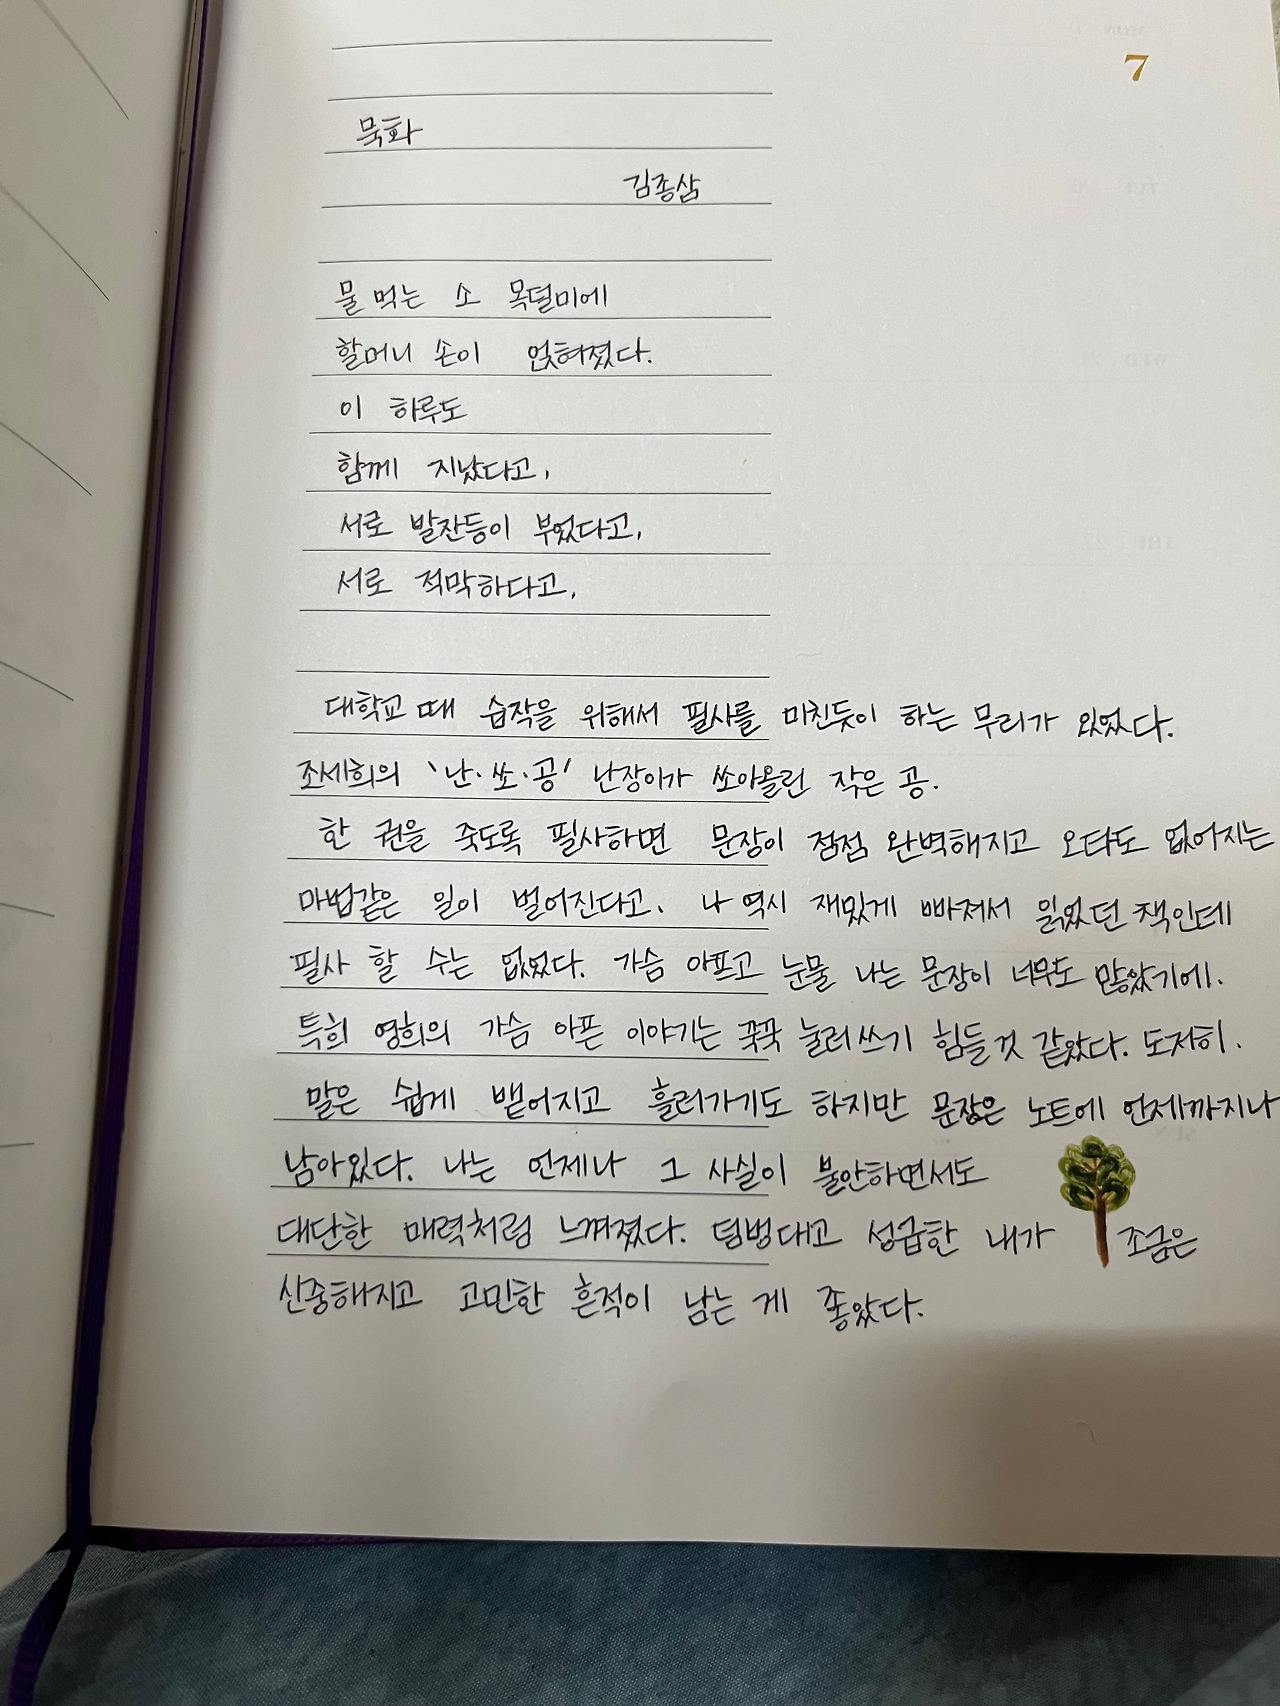 7
묵화
김종삼
물 먹는 소 목덜미에
할머니 손이 얹혀졌다.
이 하루도
함께 지났다고,
서로 발잔등이 부었다고,
서로 적막하다고,
대학교 때 습작을 위해서 필사를 미친듯이 하는 무리가 있었다.
조세희의 '난·쏘·공' 난장이가 쏘아올린 작은 공.
한 권을 죽도록 필사하면 문장이 점점 완벽해지고 오타도 없어지는
마법같은 일이 벌어진다고. 나 역시 재밌게 빠져서 읽었던 책인데
필사 할 수는 없었다. 가슴 아프고 눈물 나는 문장이 너무도 많았기에.
특히 영희의 가슴 아픈 이야기는 꾹꾹 눌러쓰기 힘들것 같았다. 도저히.
말은 쉽게 뱉어지고 흘러가기도 하지만 문장은 노트에 언제까지나
남아있다. 나는 언제나 그 사실이 불안하면서도
대단한 매력처럼 느껴졌다. 덤벙대고 성급한 내가 조금은
신중해지고 고민한 흔적이 남는 게 좋았다.